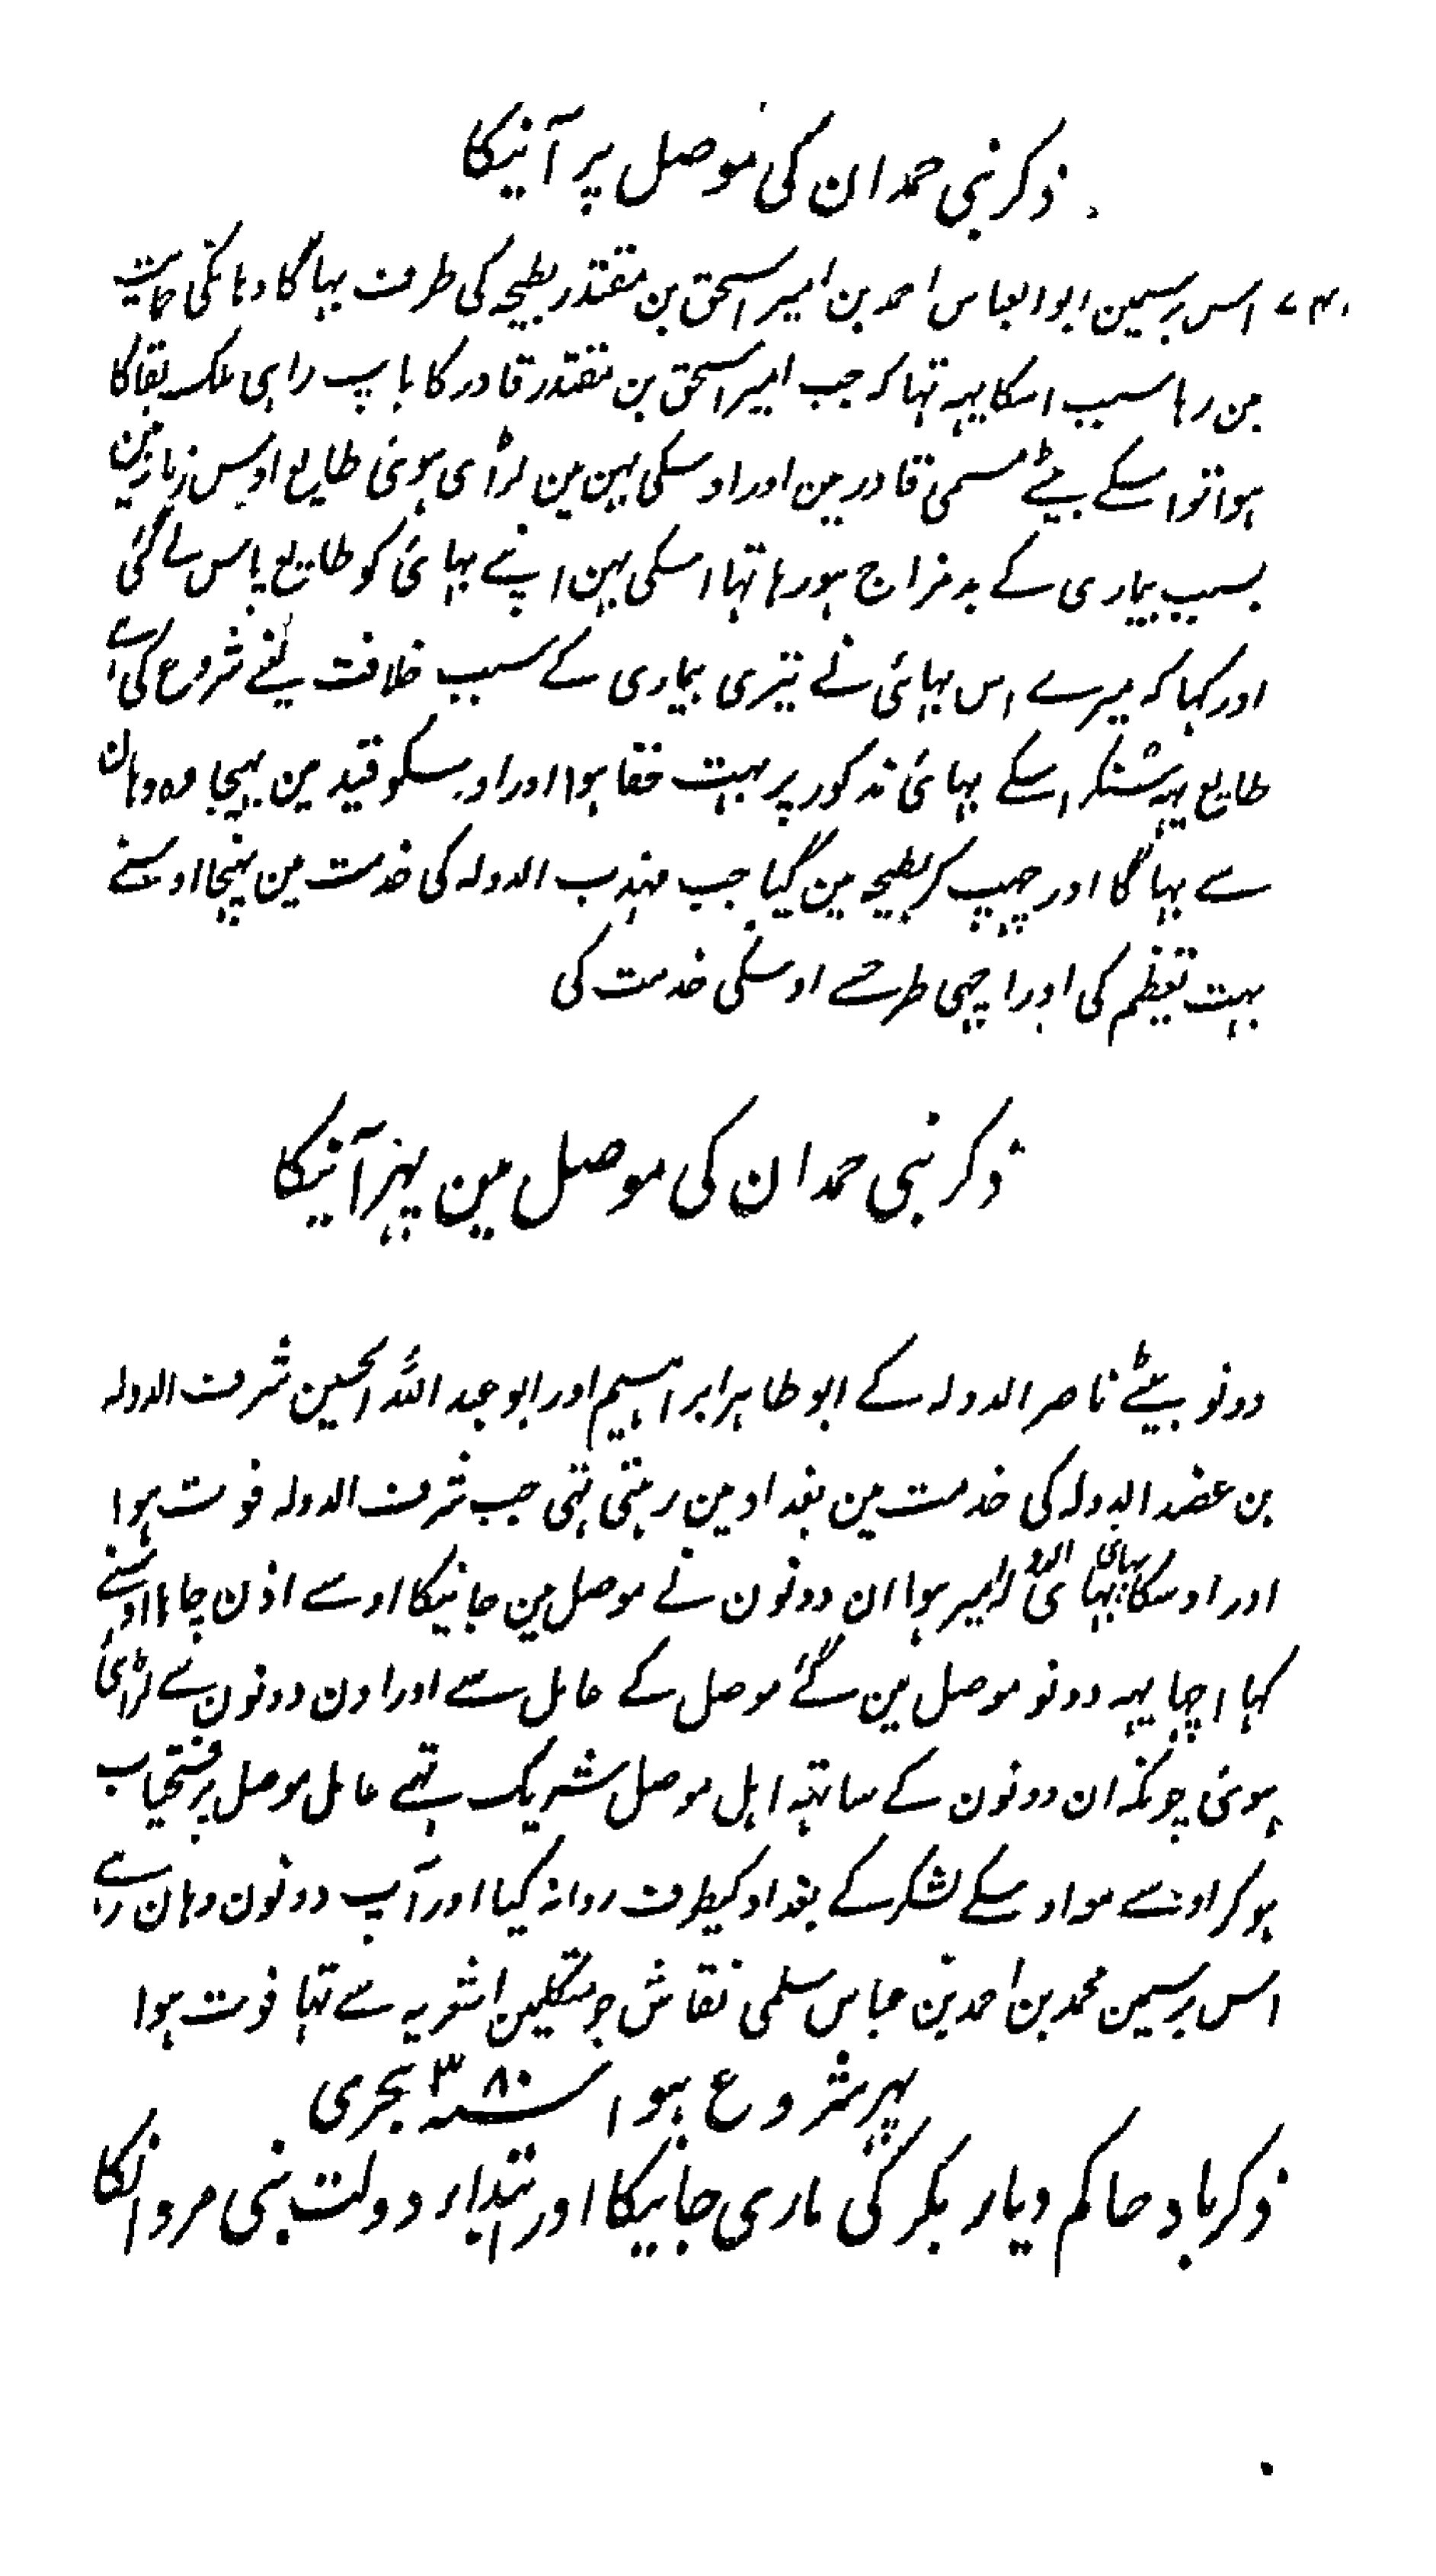 ذکر بنی حمدان کی موصل پر آنیکا
اس برسمین ابو العباس احمد بن امیر اسحق بن مقتدر بطیحہ کی طرف بہاگا وہانکی حمایت
مین رہا سبب اسکا یہہ تہا کہ جب امیر اسحق بن مقتدر قادر کا باپ راہی ملک بقا کا
ہوا تو اسکے بیٹے مسمی قادر مین اور اوسکی بہن مین لڑای ہوئی طایع اوس زمانہ مین
بسبب بیماری کے بد مزاج ہو رہا تہا اسکی بہن اپنے بہائی کو طایع پاس لے گئی
اور کہا کہ میرے اس بہائی نے تیری بیماری کے سبب خلافت لینے شروع کی ہے
طایع یہہ سُنکر اسکے بہائی مذکور پر بہت خفا ہوا اور اوسکو قید مین بہیجا وہ وہان
سے بہاگا اور چہپ کر بطیحہ مین گیا جب مہذب الدولہ کی خدمت مین پہنچا اوسنے
بہت تعظیم کی اور اچہی طرحسے اوسکی خدمت کی
ذکر بنی حمدان کی موصل مین پہر آنیکا
دونو بیٹے ناصر الدولہ کے ابو طاہر ابراہیم اور ابو عبد اللہ الحسین شرف الدولہ
بن عضد الدولہ کی خدمت مین بغداد مین رہتی تہی جب شرف الدولہ فوت ہوا
اور اوسکا بہائی امیر ہوا ان دونون نے موصل مین جانیکا اوسے اذن چاہا اوسنے
کہا اچہا یہہ دونو موصل مین گئے موصل کے عامل سے اور اون دونون سے لڑائی
ہوئی چونکہ ان دونون کے ساتہہ اہل موصل شریک تہے عامل موصل پر فتحیاب
ہوکر اوسے معہ اوسکے لشکر کے بغداد کیطرف روانہ کیا اور آپ دونون وہان رہے
اس برسمین محمد بن احمد بن عباس سلمی نقاش جو متکلمین اشعریہ سے تہا فوت ہوا
پہر شروع ہوا سنہ ۳۸۰ ہجری
ذکر باد حاکم دیار بکر کی ماری جانیکا اور ابتداء دولت بنی مروانکا